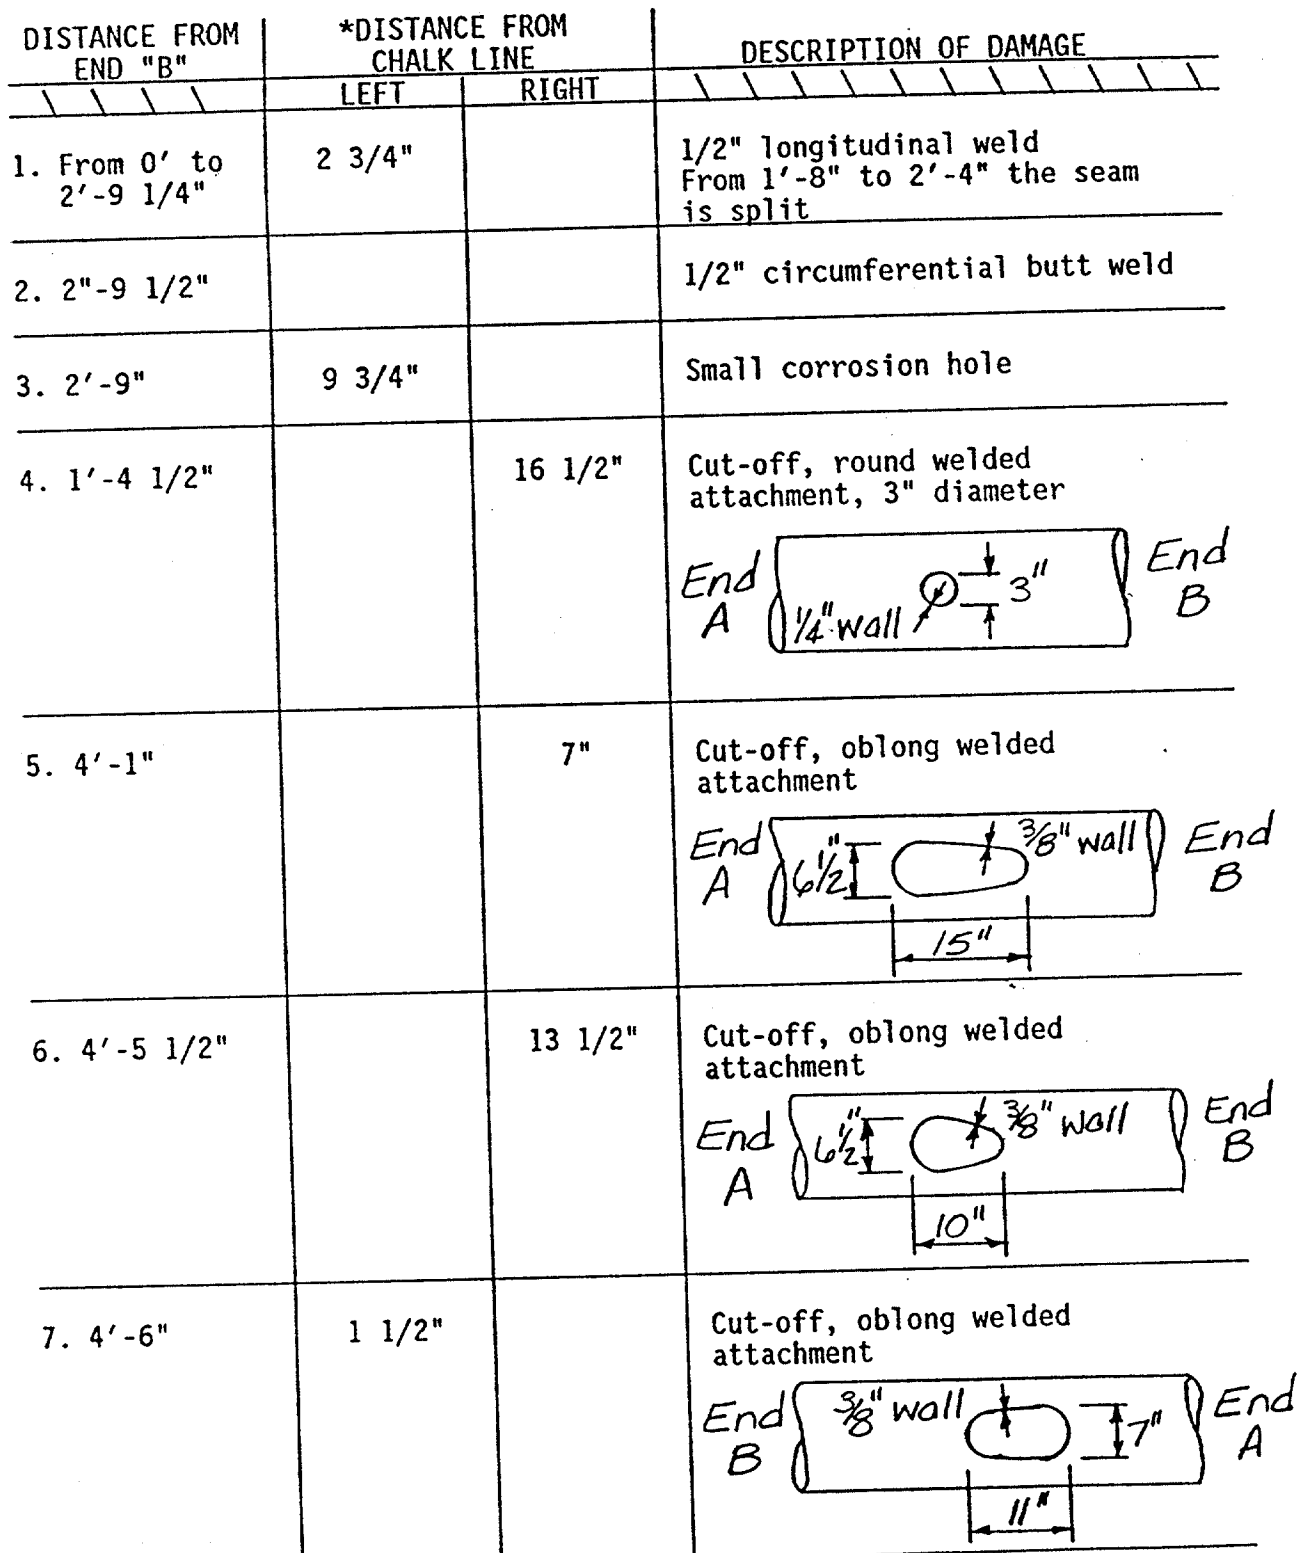 DISTANCE FROM
END "B"
*DISTANCE FROM
CHALK LINE
LEFT
RIGHT
DESCRIPTION OF DAMAGE
1. From 0' to
2'-9 1/4"
2 3/4"
1/2" longitudinal weld
From 1'-8" to 2'-4" the seam
is split
2. 2"-9 1/2"
1/2" circumferential butt weld
3. 2'-9"
9 3/4"
Small corrosion hole
4. 1'-4 1/2"
16 1/2"
Cut-off, round welded
attachment, 3" diameter
End
A
1/4" wall
3"
End
B
5. 4'-1"
7"
Cut-off, oblong welded
attachment
End
A
6 1/2"
3/8" wall
15"
End
B
6. 4'-5 1/2"
13 1/2"
Cut-off, oblong welded
attachment
End
A
6 1/2"
3/8" wall
10"
End
B
7. 4'-6"
1 1/2"
Cut-off, oblong welded
attachment
End
B
3/8" wall
7"
11"
End
A